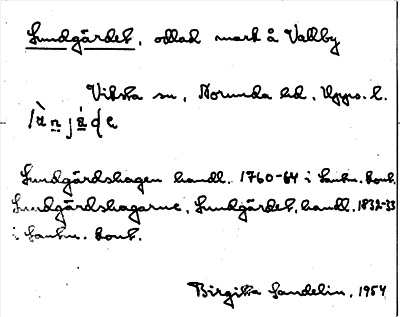 Lundgärdet, odlad mark å Vallby
Viksta sn, Norunda hd, Upps. l.
Lundgärdshagen handl. 1760-64 i Lantm. kont.
Lundgärdshagarne, Lundgärdet, handl. 1832-33
i Lantm. kont.
Birgitta Sandelin, 1954